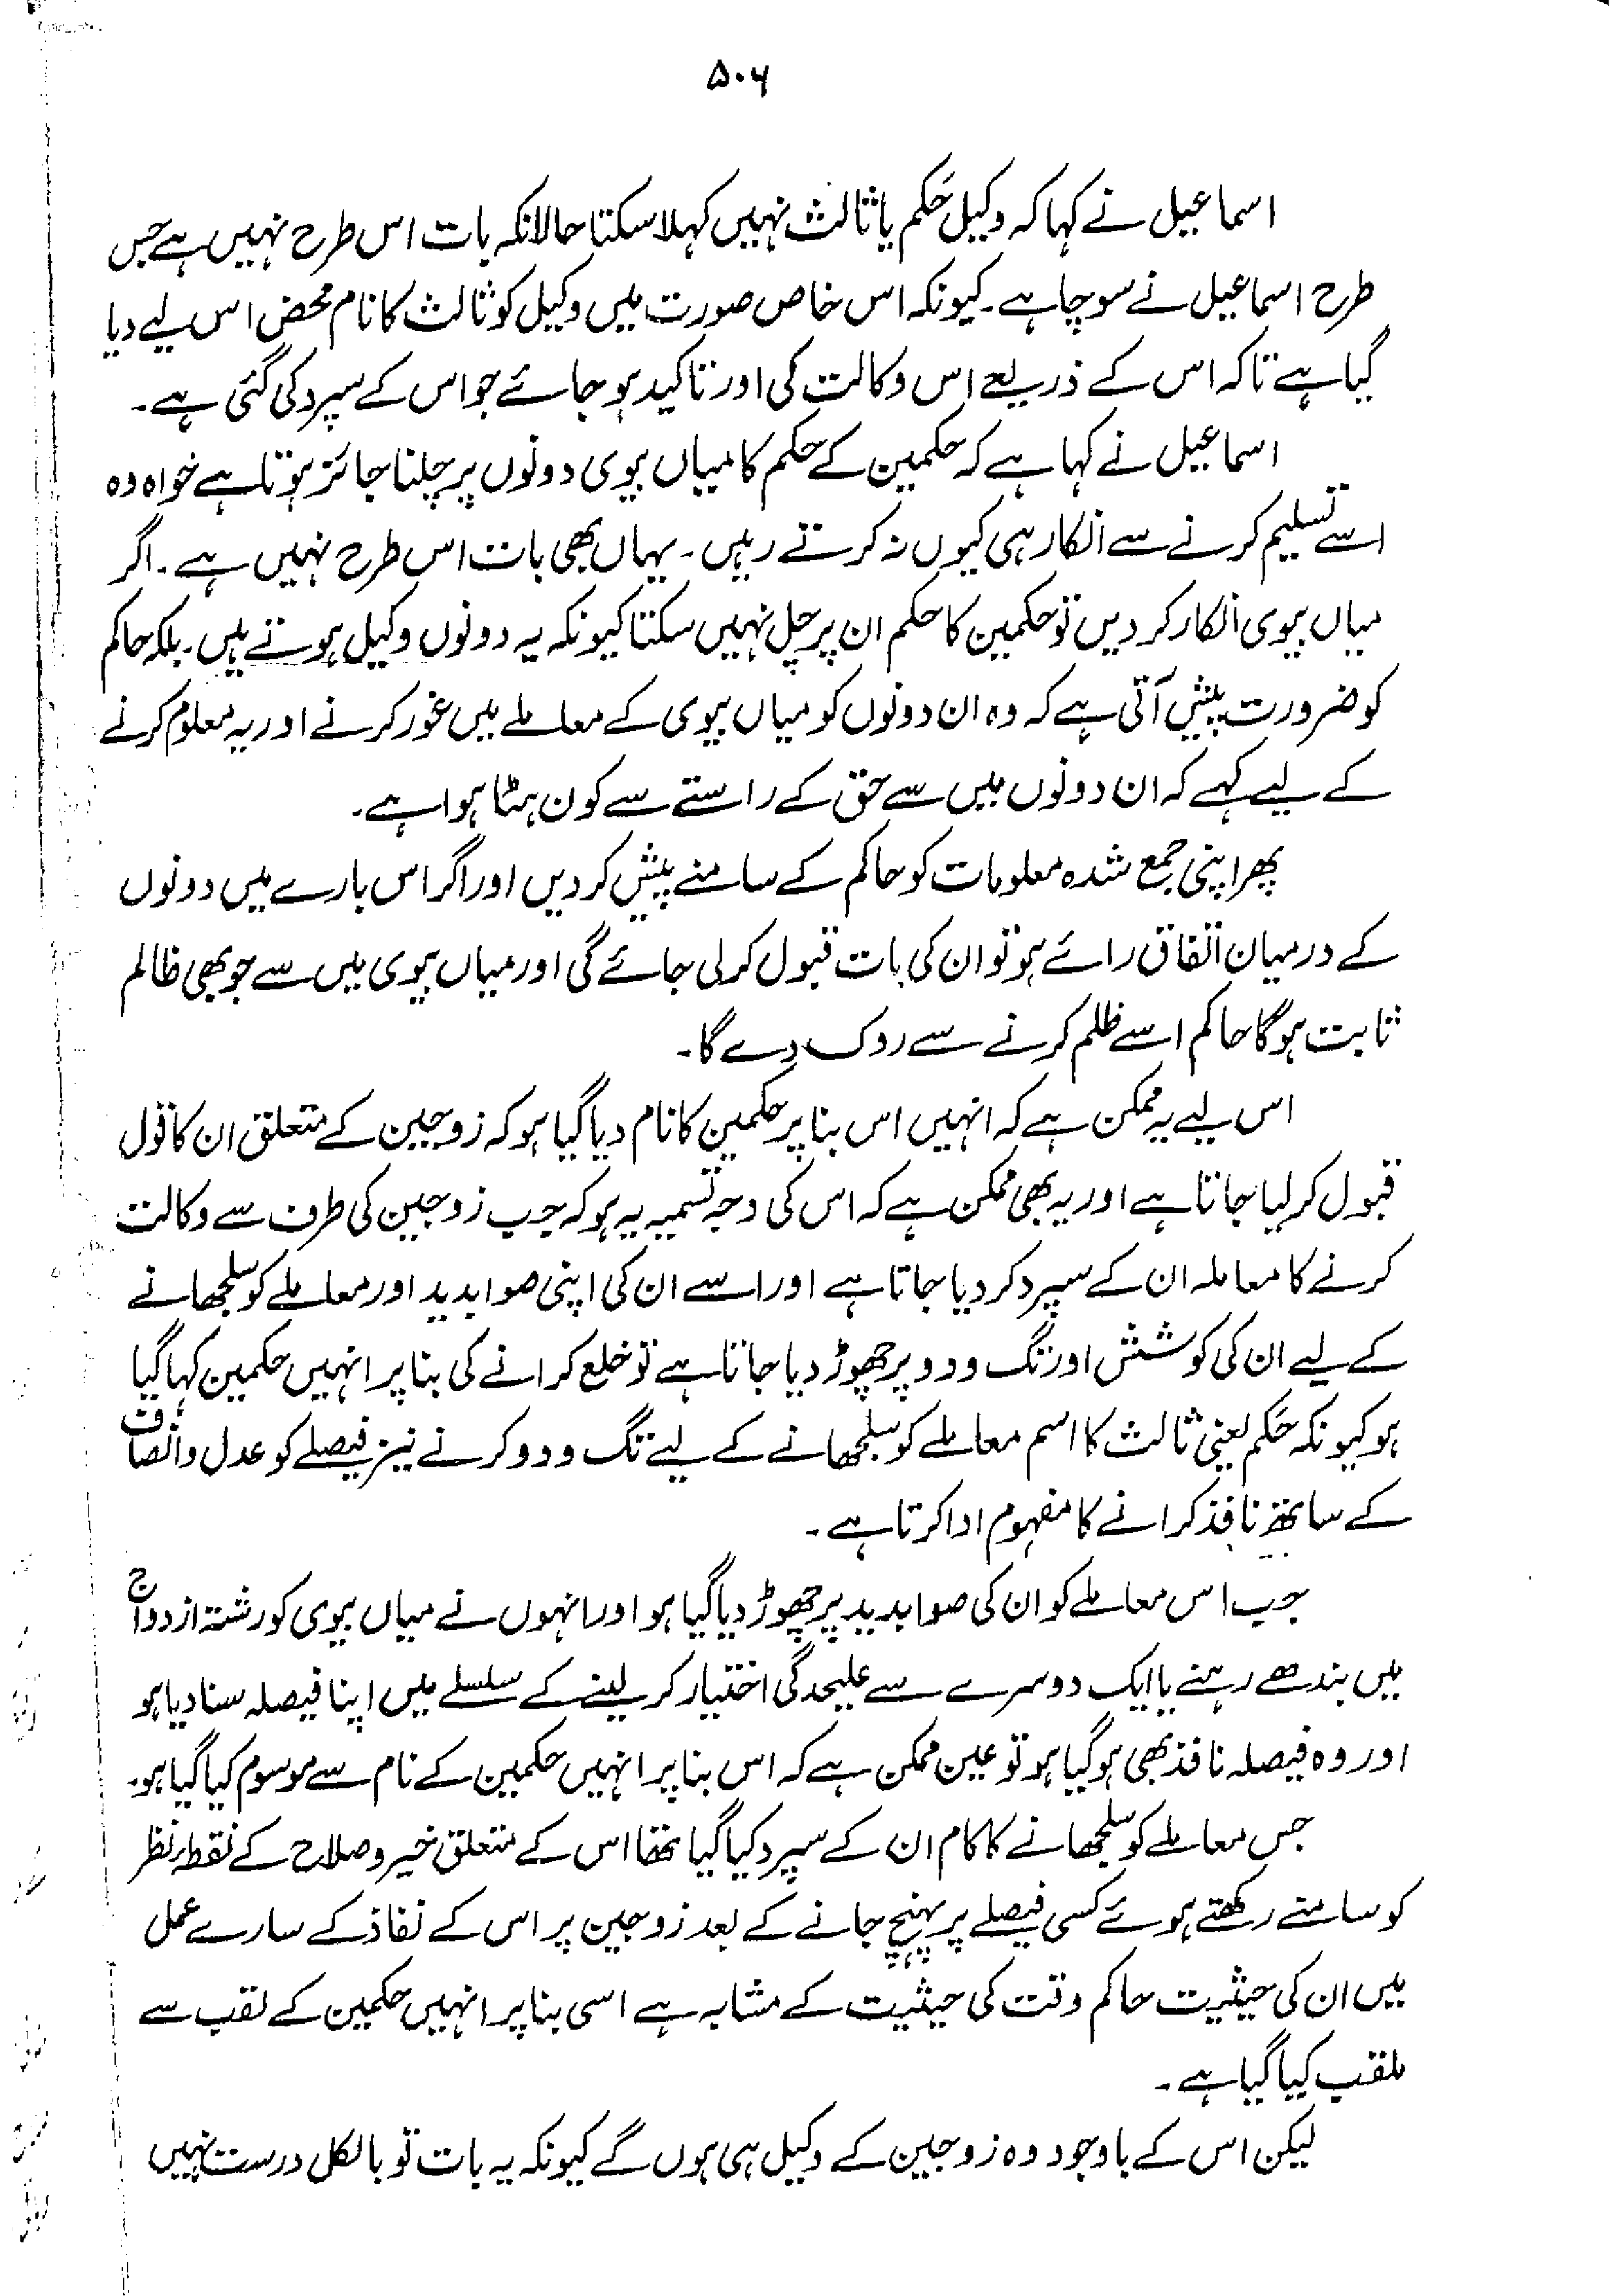 ۵۰۶
اسماعیل نے کہا کہ وکیل حَکم یا ثالث نہیں کہلا سکتا حالانکہ بات اس طرح نہیں ہے جس
طرح اسماعیل نے سوچا ہے۔ کیونکہ اس خاص صورت میں وکیل کو ثالث کا نام محض اس لیے دیا
گیا ہے تاکہ اس کے ذریعے اس وکالت کی اور تاکید ہو جائے جو اس کے سپرد کی گئی ہے۔
اسماعیل نے کہا ہے کہ حکمین کے حکم کا میاں بیوی دونوں پر چلنا جائز ہوتا ہے خواہ وہ
اسے تسلیم کرنے سے انکار ہی کیوں نہ کرتے رہیں۔ یہاں بھی بات اس طرح نہیں ہے۔ اگر
میاں بیوی انکار کر دیں تو حکمین کا حکم ان پر چل نہیں سکتا کیونکہ یہ دونوں وکیل ہوتے ہیں۔ بلکہ حاکم
کو ضرورت پیش آتی ہے کہ وہ ان دونوں کو میاں بیوی کے معاملے میں غور کرنے اور یہ معلوم کرنے
کے لیے کہے کہ ان دونوں میں سے حق کے راستے سے کون ہٹا ہوا ہے۔
پھر اپنی جمع شدہ معلومات کو حاکم کے سامنے پیش کر دیں اور اگر اس بارے میں دونوں
کے درمیان اتفاق رائے ہو تو ان کی بات قبول کر لی جائے گی اور میاں بیوی میں سے جو بھی ظالم
ثابت ہوگا حاکم اسے ظلم کرنے سے روک دے گا۔
اس لیے یہ ممکن ہے کہ انہیں اس بنا پر حکمین کا نام دیا گیا ہو کہ زوجین کے متعلق ان کا قول
قبول کر لیا جاتا ہے اور یہ بھی ممکن ہے کہ اس کی وجہ تسمیہ یہ ہو کہ جب زوجین کی طرف سے وکالت
کرنے کا معاملہ ان کے سپرد کر دیا جاتا ہے اور اسے ان کی اپنی صوابدید اور معاملے کو سلجھانے
کے لیے ان کی کوشش اور تگ و دو پر چھوڑ دیا جاتا ہے تو خلع کرانے کی بنا پر انہیں حکمین کہا گیا
ہو کیونکہ حَکم یعنی ثالث کا اسم معاملے کو سلجھانے کے لیے تگ و دو کرنے نیز فیصلے کو عدل و انصاف
کے ساتھ نافذ کرانے کا مفہوم ادا کرتا ہے۔
جب اس معاملے کو ان کی صوابدید پر چھوڑ دیا گیا ہو اور انہوں نے میاں بیوی کو رشتۂ ازدواج
میں بندھے رہنے یا ایک دوسرے سے علیحدگی اختیار کر لینے کے سلسلے میں اپنا فیصلہ سنا دیا ہو
اور وہ فیصلہ نافذ بھی ہو گیا ہو تو عین ممکن ہے کہ اس بنا پر انہیں حکمین کے نام سے موسوم کیا گیا ہو۔
جس معاملے کو سلجھانے کا کام ان کے سپرد کیا گیا تھا اس کے متعلق خیر و صلاح کے نقطہ نظر
کو سامنے رکھتے ہوئے کسی فیصلے پر پہنچ جانے کے بعد زوجین پر اس کے نفاذ کے سارے عمل
میں ان کی حیثیت حاکم وقت کی حیثیت کے مشابہ ہے اسی بنا پر انہیں حکمین کے لقب سے
ملقب کیا گیا ہے۔
لیکن اس کے باوجود وہ زوجین کے وکیل ہی ہوں گے کیونکہ یہ بات تو بالکل درست نہیں